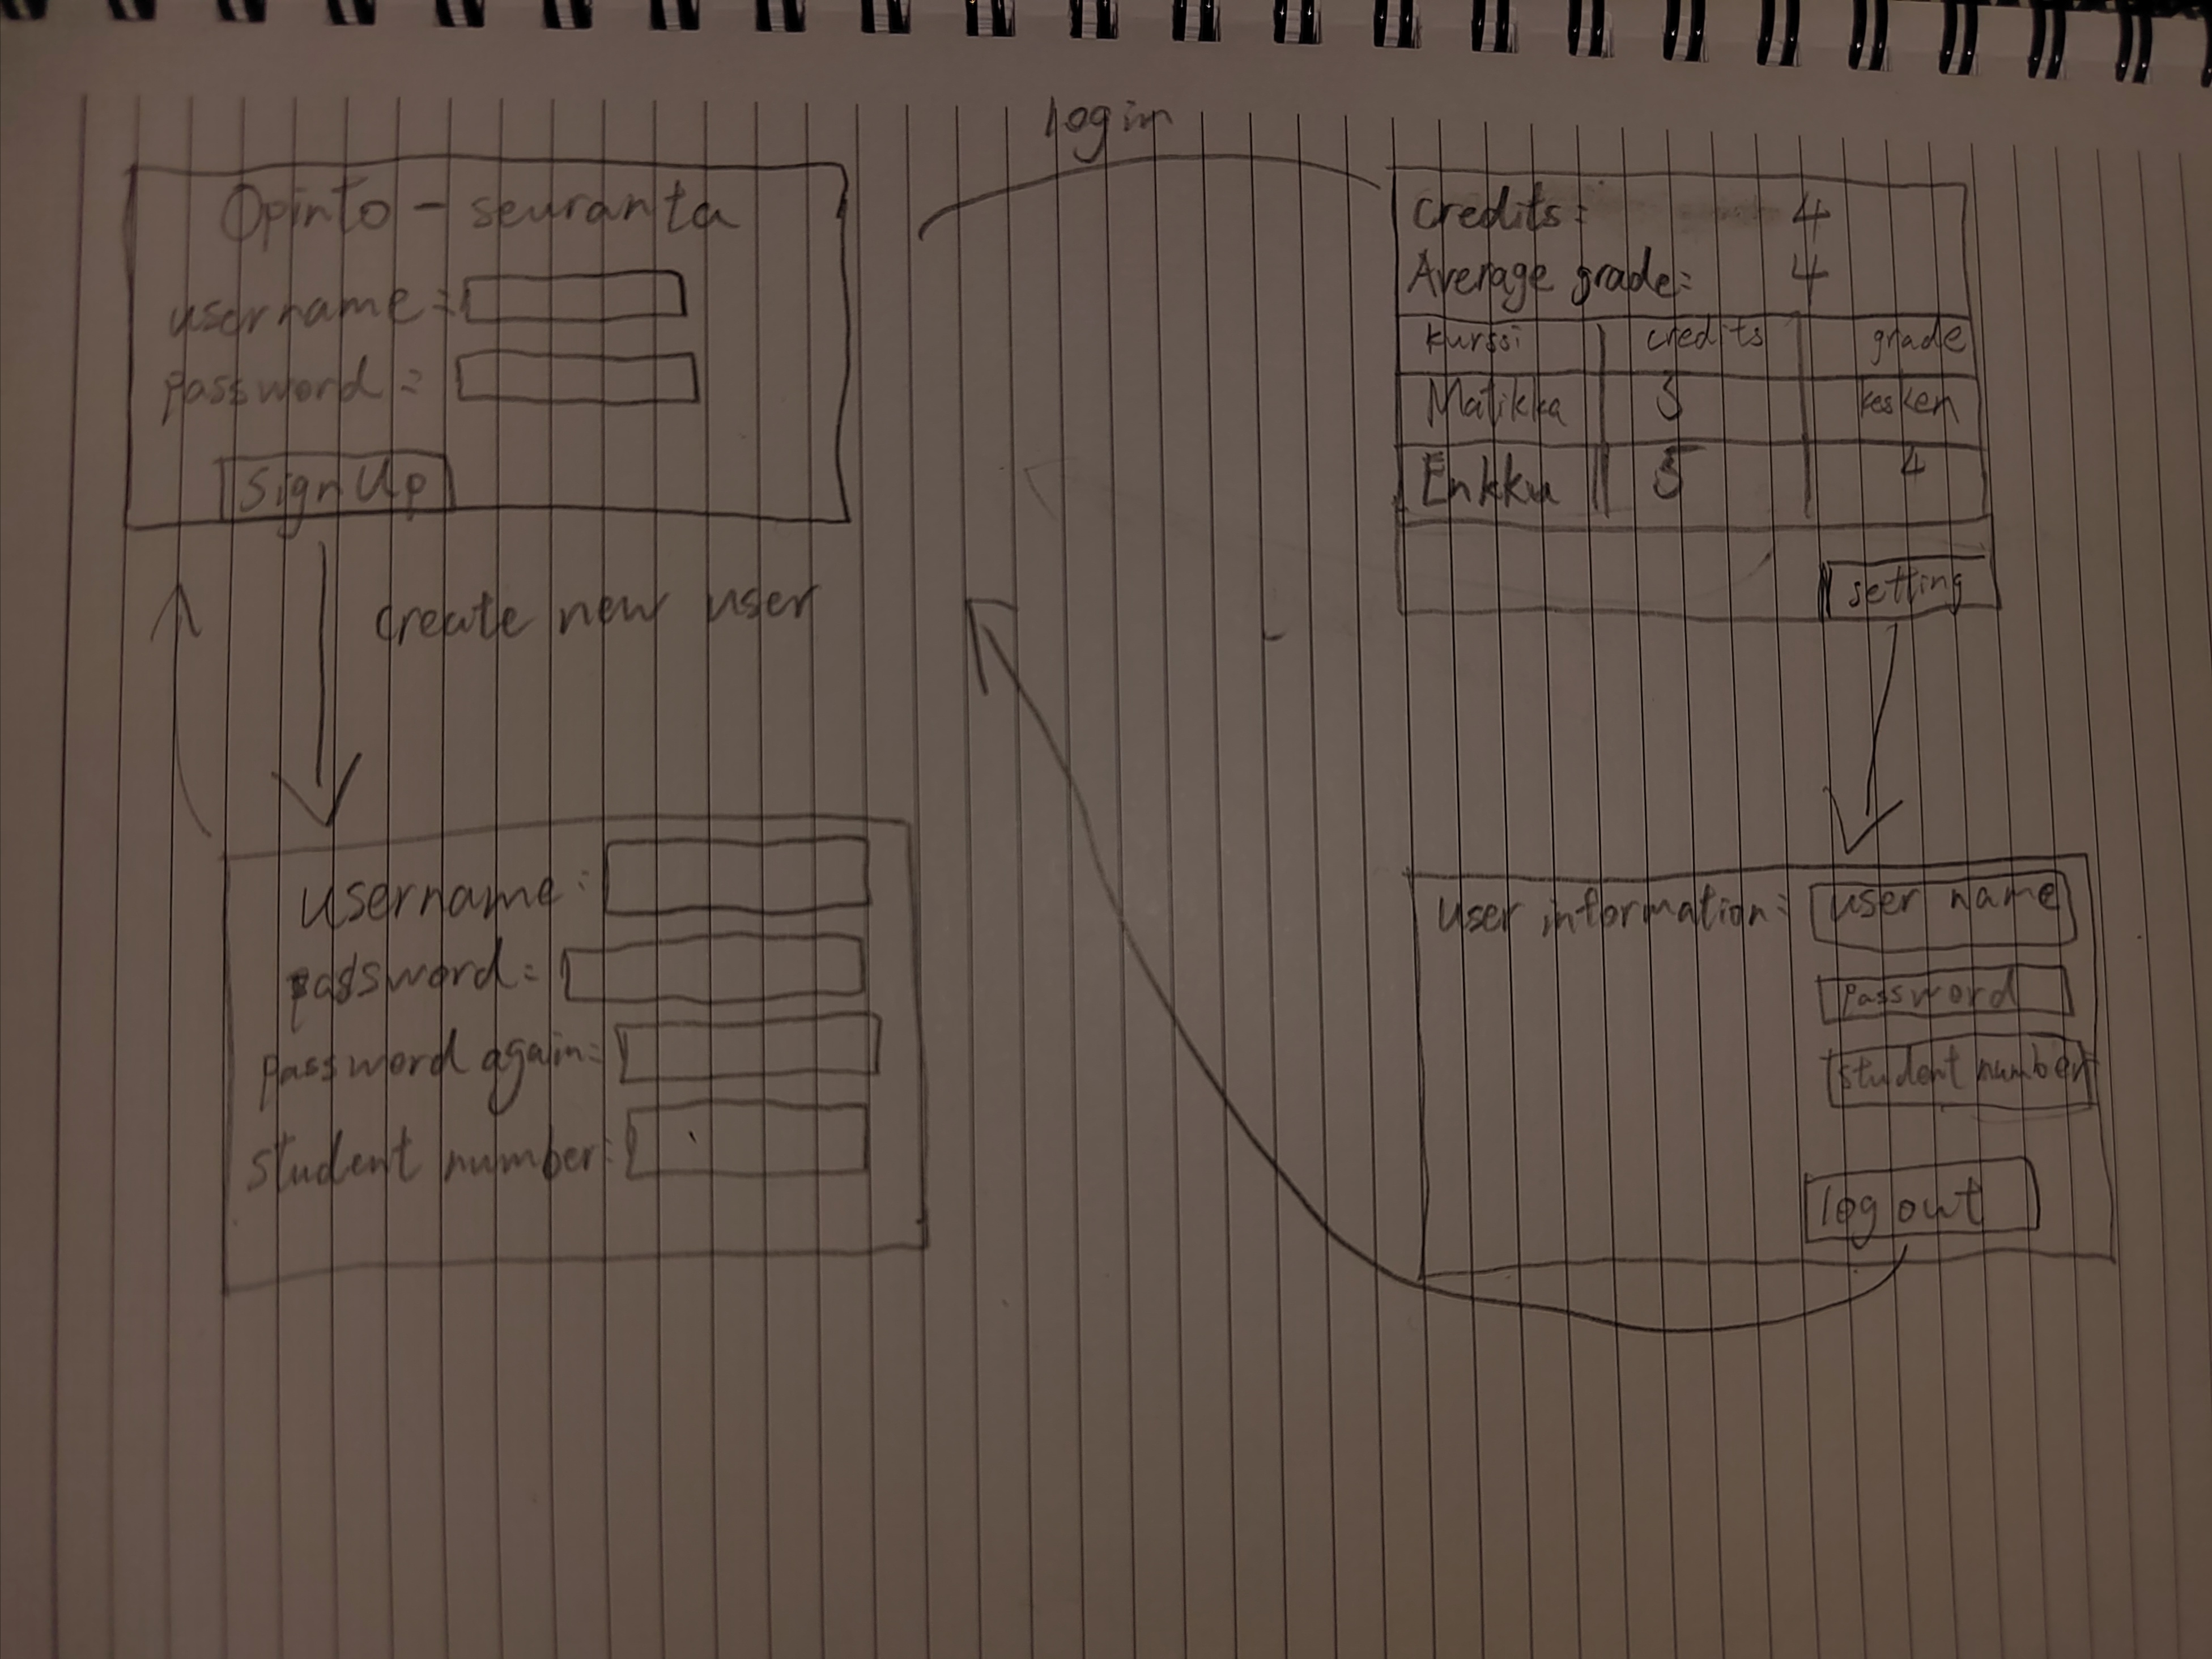 login
Opinto - seuranta
username:
password:
Sign Up
create new user
username:
password:
password again:
student number:
Credits: 4
Average grade: 4
kurssi credits grade
Matikka 5 kesken
Enkku 5 4
setting
user information: user name
password
student number
log out